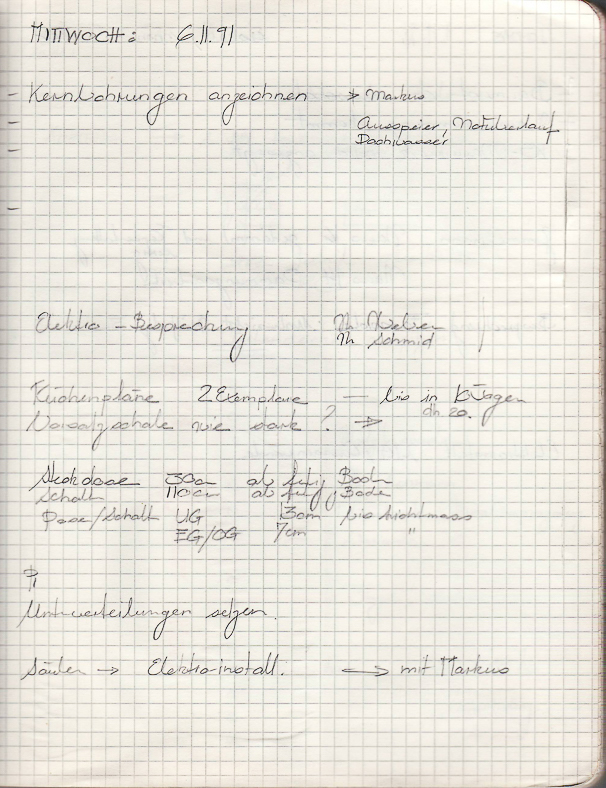 MITTWOCH: 6.11.91
- Kernbohrungen anzeichnen → Markus
Ausspeier, Notüberlauf
Dachwasser
-
-
Elektro-Besprechung Hr. Weber
Hr. Schmid
Küchenpläne 2 Exemplare — bis in 15 Tagen
Vorsatzschale wie stark? → dh 20.
Steckdose 30cm ab fertig Boden
Schalt 110cm ab fertig Boden
Dose/Schalt UG 13cm bis Lichtmass
EG/OG 7cm "
Unterverteilungen setzen.
Säulen → Elektro-install. → mit Markus